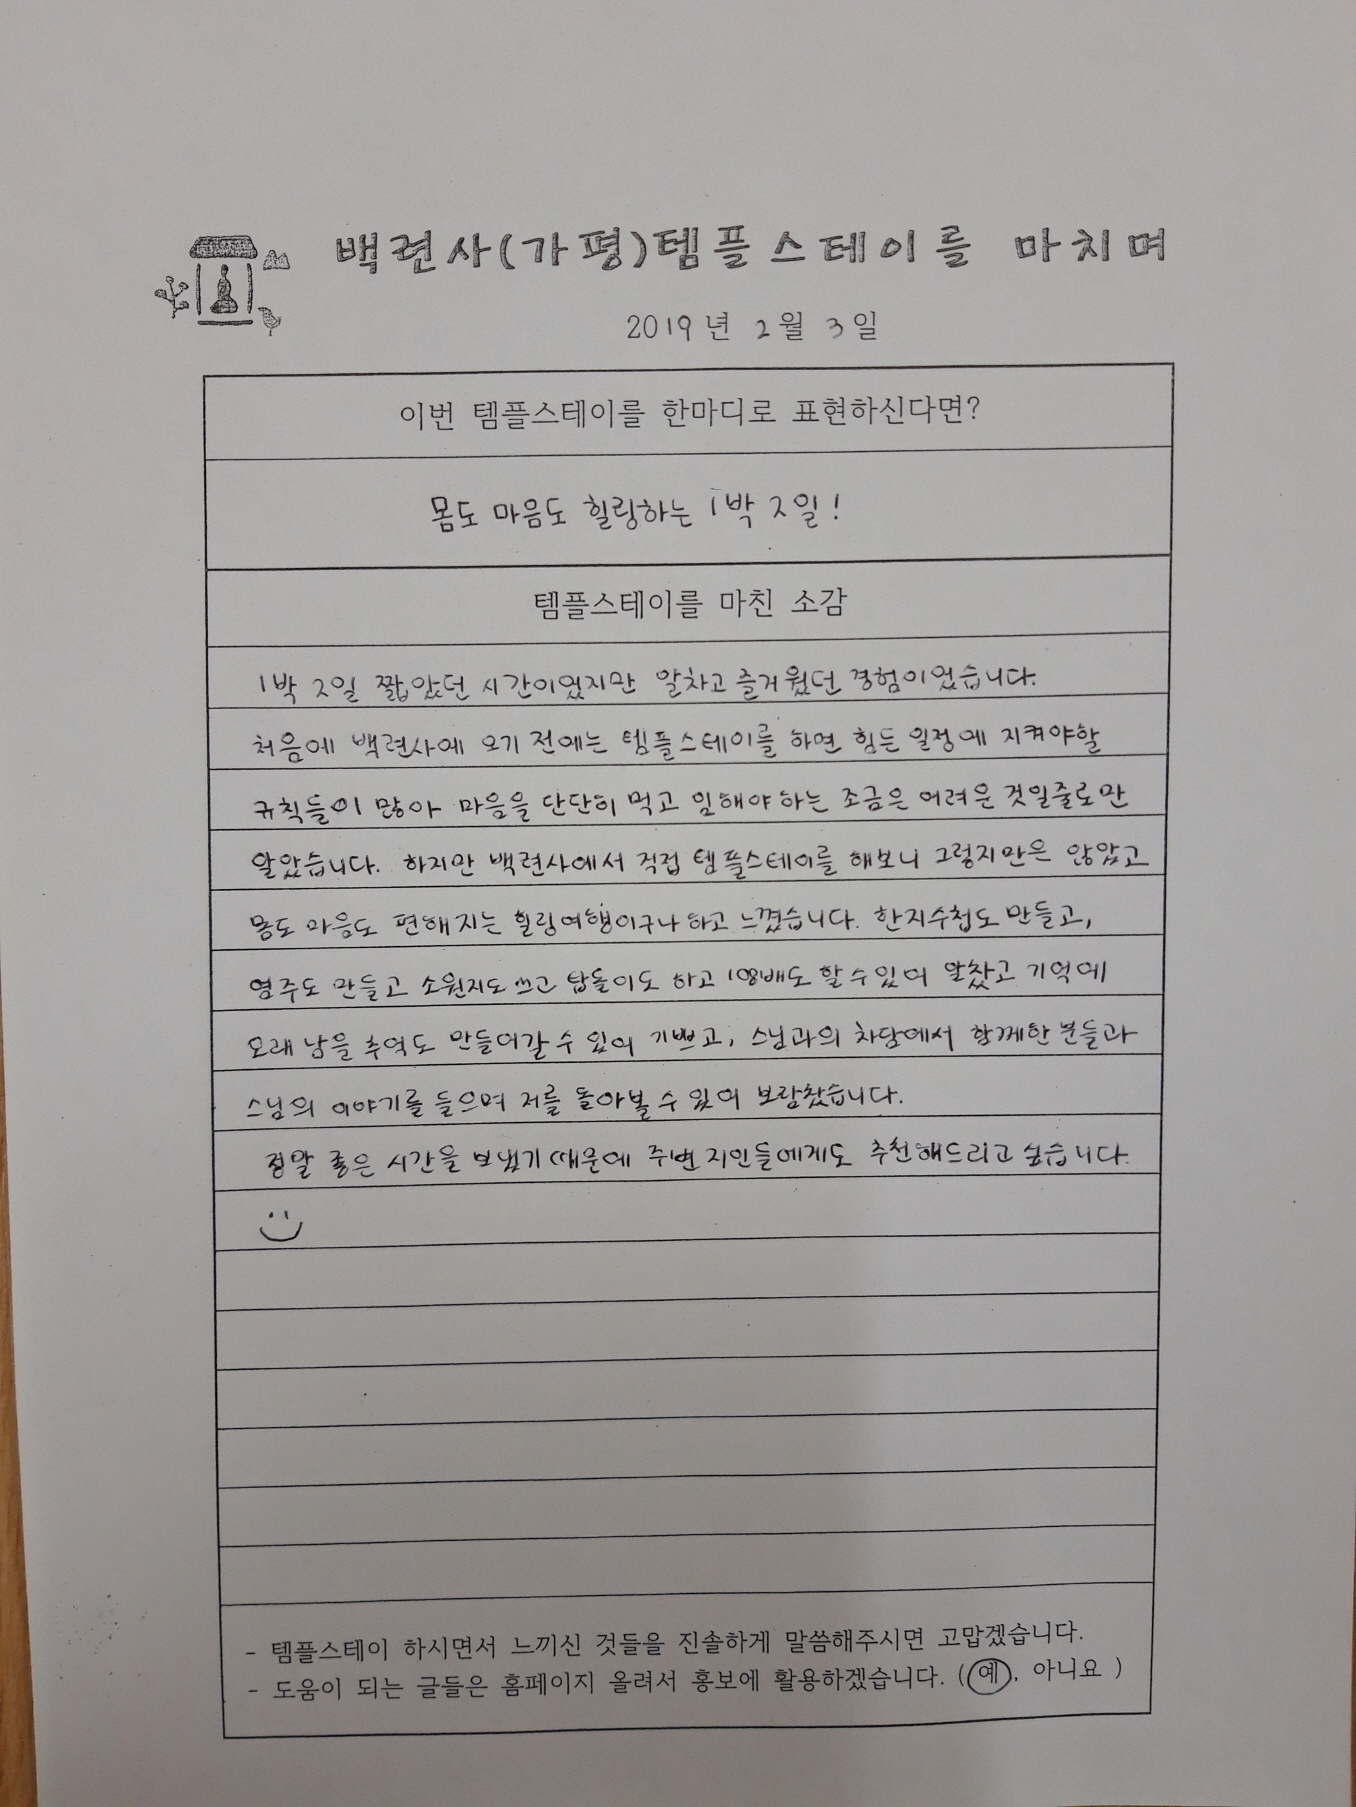 백련사(가평)템플스테이를 마치며
2019년 2월 3일
이번 템플스테이를 한마디로 표현하신다면?
몸도 마음도 힐링하는 1박 2일!
템플스테이를 마친 소감
1박 2일 짧았던 시간이었지만 알차고 즐거웠던 경험이었습니다.
처음에 백련사에 오기 전에는 템플스테이를 하면 힘든 일정에 지켜야할
규칙들이 많아 마음을 단단히 먹고 임해야 하는 조금은 어려운 것일줄로만
알았습니다. 하지만 백련사에서 직접 템플스테이를 해보니 그렇지만은 않았고
몸도 마음도 편해지는 힐링여행이구나 하고 느꼈습니다. 한지수첩도 만들고,
염주도 만들고 소원지도 쓰고 탑돌이도 하고 108배도 할 수 있어 알찼고 기억에
오래 남을 추억도 만들어갈 수 있어 기쁘고, 스님과의 차담에서 함께한 분들과
스님의 이야기를 들으며 저를 돌아볼 수 있어 보람찼습니다.
정말 좋은 시간을 보냈기 때문에 주변 지인들에게도 추천해드리고 싶습니다.
- 템플스테이 하시면서 느끼신 것들을 진솔하게 말씀해주시면 고맙겠습니다.
- 도움이 되는 글들은 홈페이지 올려서 홍보에 활용하겠습니다. (예, 아니요 )